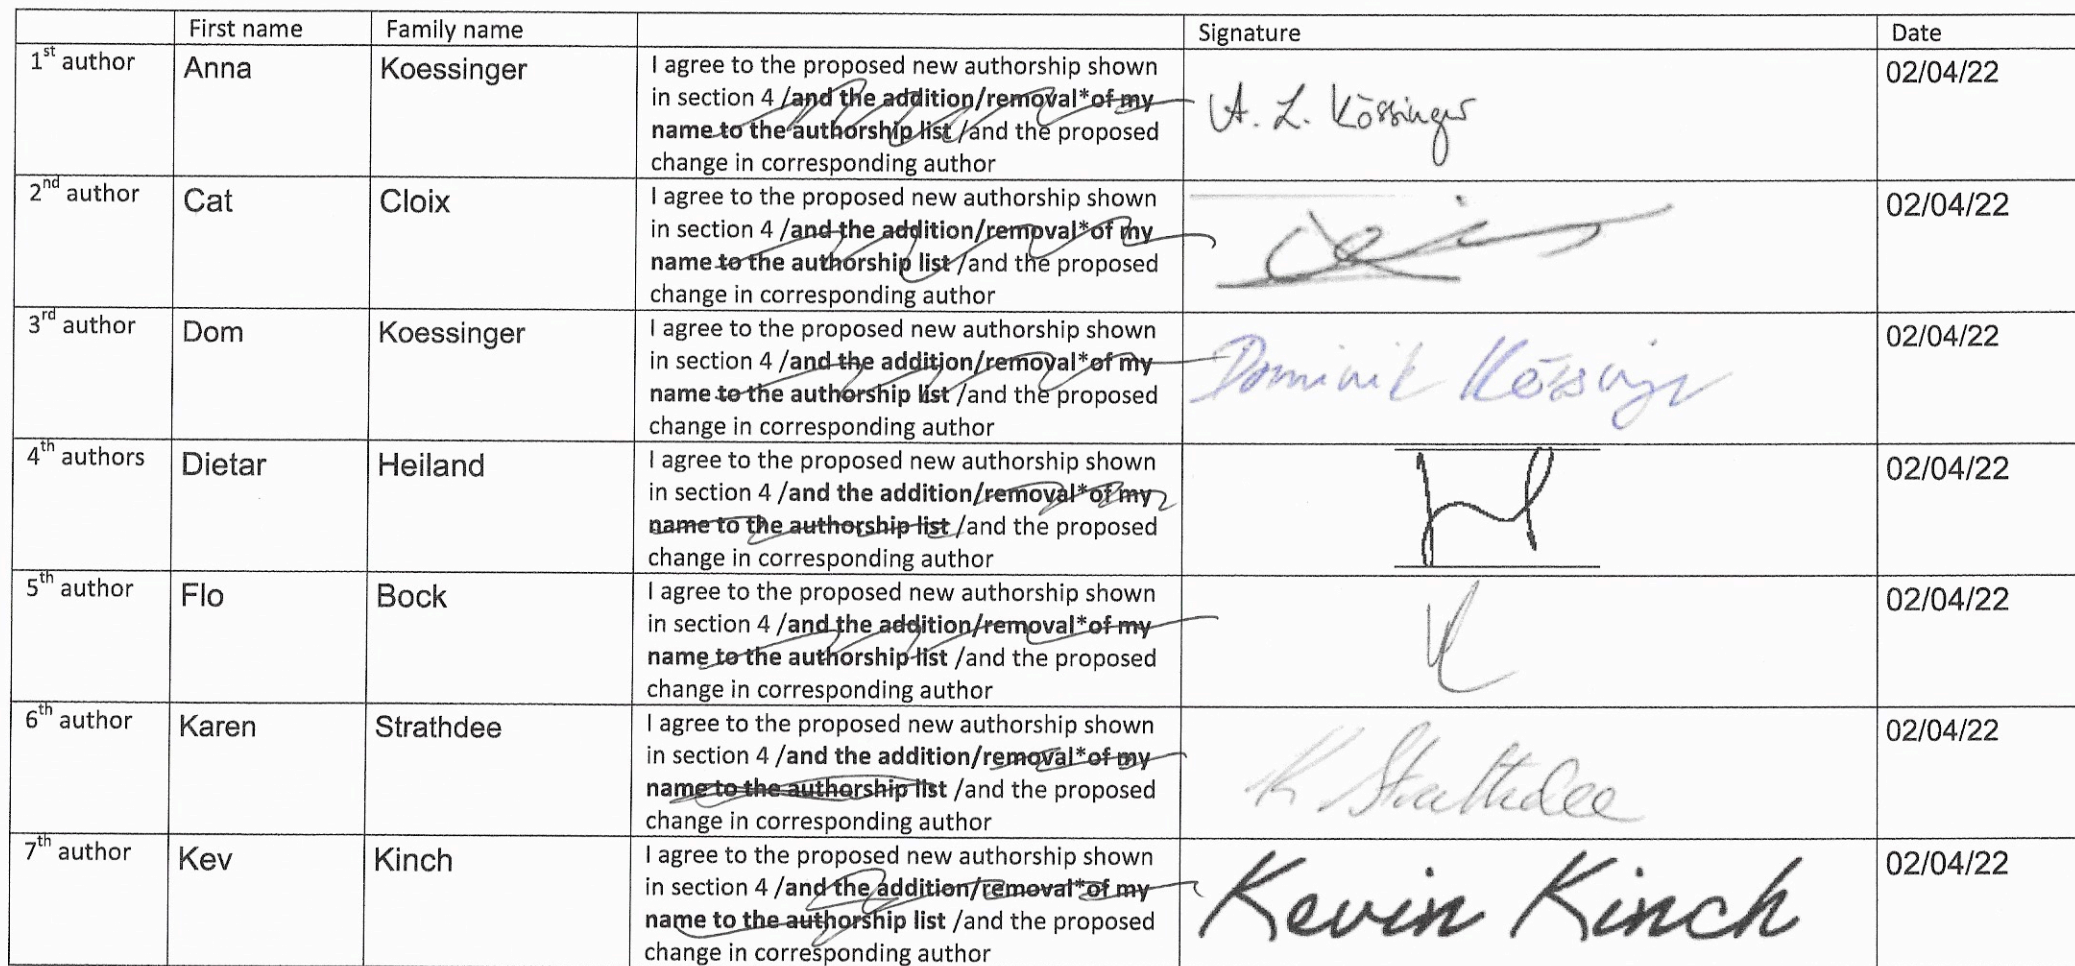 First name Family name Signature Date
1st author Anna Koessinger I agree to the proposed new authorship shown A. L. Kössinger 02/04/22
in section 4 /and the addition/removal*of my
name to the authorship list /and the proposed
change in corresponding author
2nd author Cat Cloix I agree to the proposed new authorship shown 02/04/22
in section 4 /and the addition/removal*of my
name to the authorship list /and the proposed
change in corresponding author
3rd author Dom Koessinger I agree to the proposed new authorship shown Dominik Kössinger 02/04/22
in section 4 /and the addition/removal*of my
name to the authorship list /and the proposed
change in corresponding author
4th authors Dietar Heiland I agree to the proposed new authorship shown 02/04/22
in section 4 /and the addition/removal*of my
name to the authorship list /and the proposed
change in corresponding author
5th author Flo Bock I agree to the proposed new authorship shown 02/04/22
in section 4 /and the addition/removal*of my
name to the authorship list /and the proposed
change in corresponding author
6th author Karen Strathdee I agree to the proposed new authorship shown K Strathdee 02/04/22
in section 4 /and the addition/removal*of my
name to the authorship list /and the proposed
change in corresponding author
7th author Kev Kinch I agree to the proposed new authorship shown Kevin Kinch 02/04/22
in section 4 /and the addition/removal*of my
name to the authorship list /and the proposed
change in corresponding author